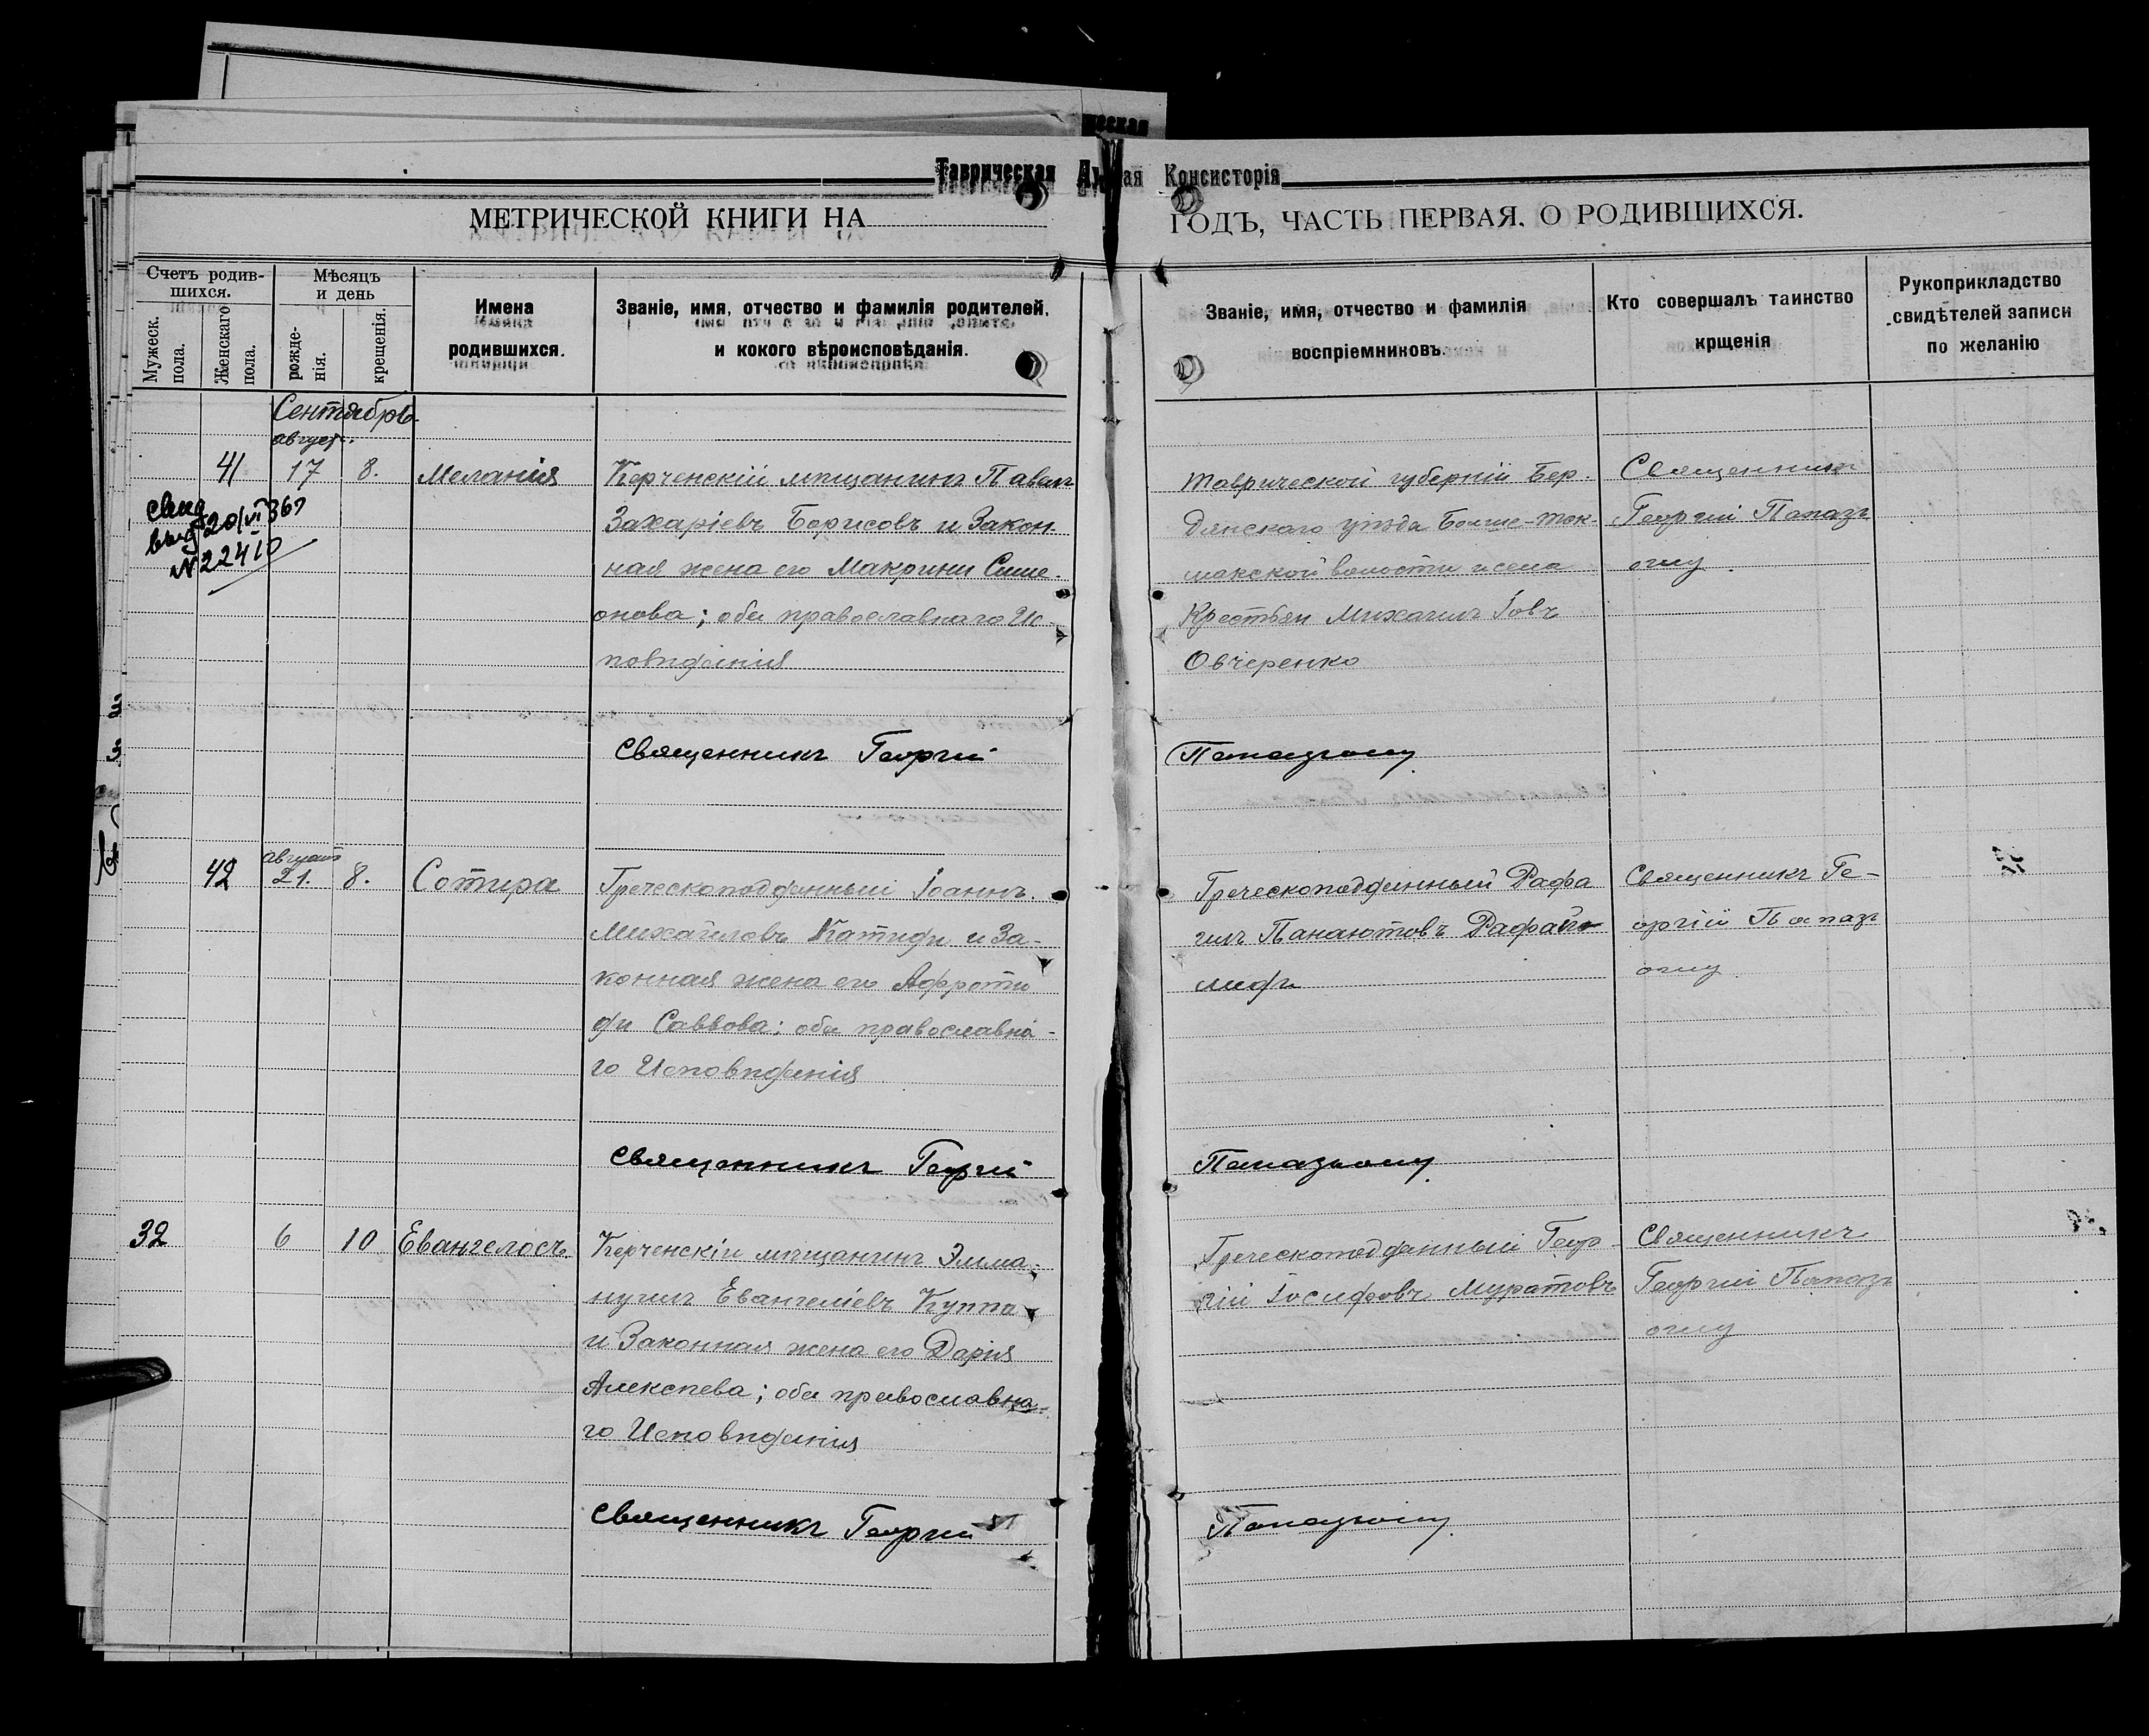 Таврическая Ду ая Консисторія
МЕТРИЧЕСКОЙ КНИГИ НА
ГОДЪ, ЧАСТЬ ПЕРВАЯ. О РОДИВШИХСЯ.
Счетъ родив-
шихся.
Мужеск.
пола.
Женскаго
пола.
Мѣсяцъ
и день
рожде-
нія.
крещенія.
Имена
родившихся.
Званіе, имя, отчество и фамилія родителей,
и кокого вѣроисповѣданія.
Званіе, имя, отчество и фамилія
воспріемниковъ.
Кто совершалъ таинство
крщенія
Рукоприкладство
свидѣтелей записи
по желанію
Сентябрь
август.
41 17 8. Меланія
свид
выд 20/VI 36г
N 22410
Керченскій мѣщанинъ Павелъ
Захаріевъ Борисовъ и Закон
ная жена его Макрини Симе-
онова; оба православнаго Ис-
повѣданія
Таврической губерніи Бер-
дянскаго уѣзда Больше-Ток-
макской волости и села
Крестьян Михаилъ Іовъ
Овчеренко
Священникъ
Георгій Папазъ
оглу
Священникъ Георгій
Папазъоглу
42 августа 21. 8. Сотира
Греческоподданный Іоаннъ
Михайловъ Катиди и За-
конная жена его Афроти
ди Саввова: оба православна-
го Исповѣданія
Греческоподданный Рафа
илъ Панаютовъ Рафаи
лиди
Священникъ Ге-
оргій Папазъ
оглу
Священникъ Георгій
Папазъоглу
32 6 10 Евангелосъ
Керченскій мѣщанинъ Эмма-
нуилъ Евангеліевъ Куппа
и Законная жена его Дарія
Алексѣева; оба православна-
го Исповѣданія
Греческоподданный Геор-
гій Іосифовъ Муратовъ
Священникъ
Георгій Папазъ
оглу
Священникъ Георгій
Папазъоглу